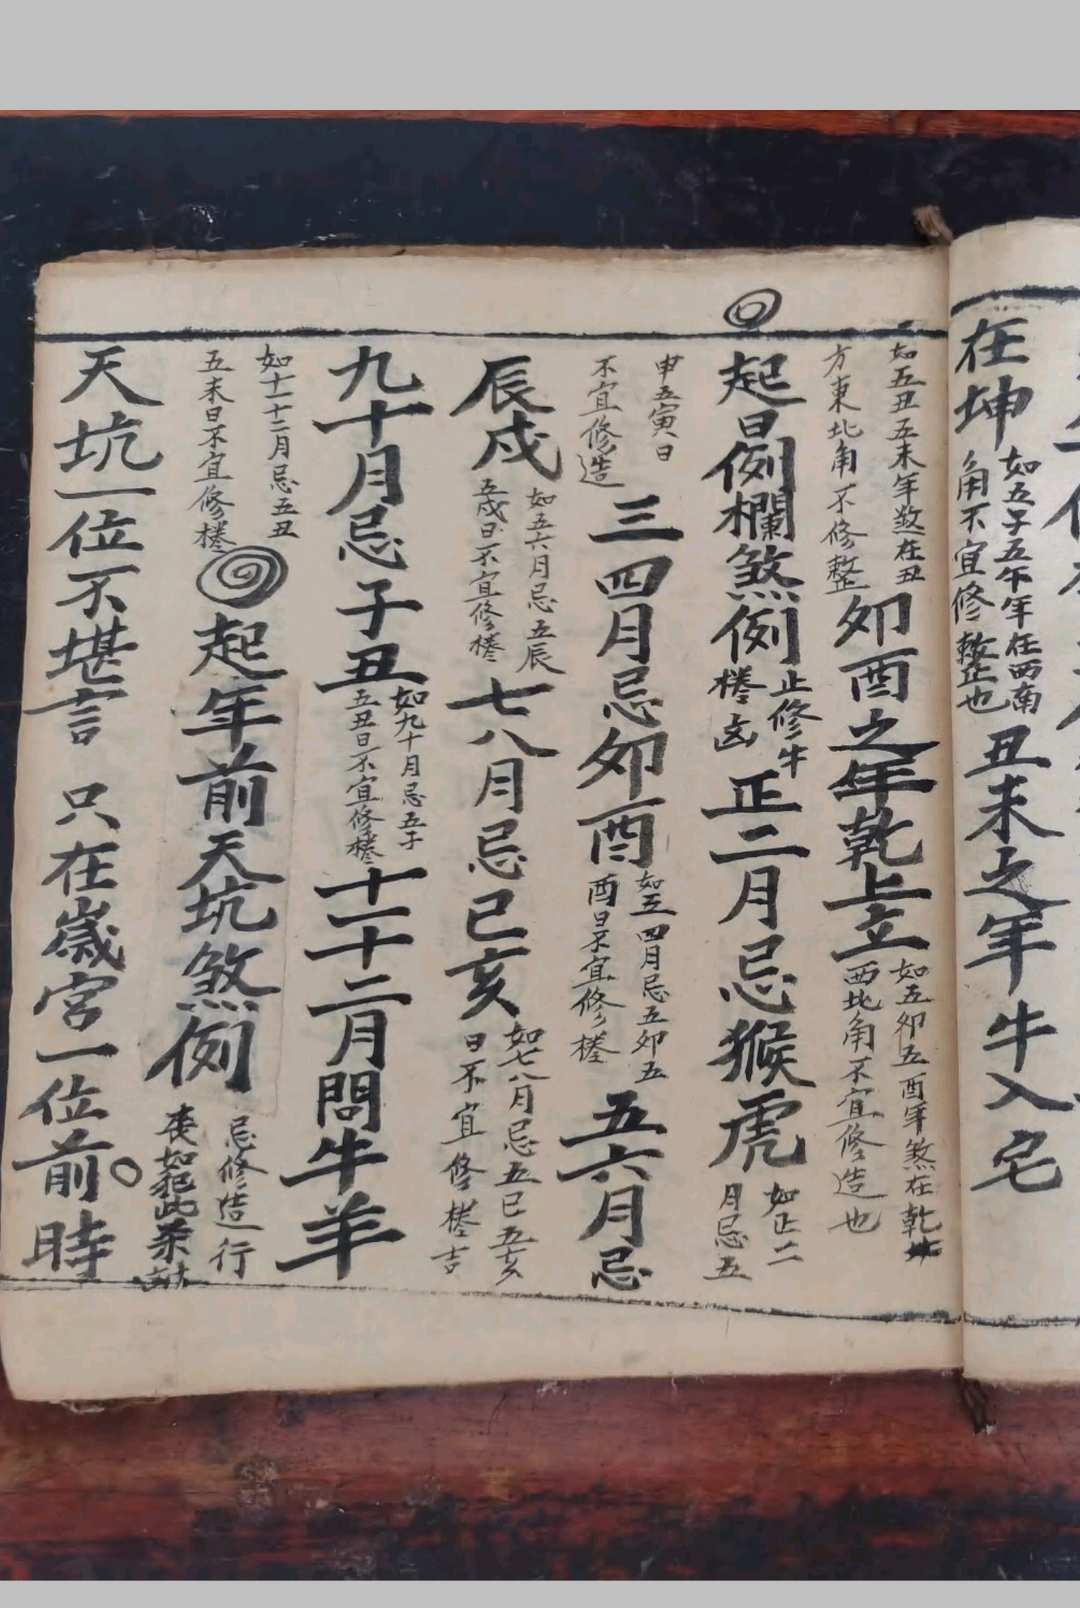 在坤
如五子五午年在西南
角不宜修整也
丑未之年牛入宅
如五丑五未年煞在丑
方東北角不修整
夘酉之年乾上立
如五夘五酉年煞在乾
西北角不宜修造也
起日例欄煞例
止修牛
棬凶
正二月忌猴虎
如正二
月忌五
申五寅日
不宜修造
三四月忌夘酉
如五四月忌五夘五
酉日不宜修棬
五六月忌
辰戌
如五六月忌五辰
五戌日不宜修棬
七八月忌已亥
如七八月忌五已五亥
日不宜修棬吉
九十月忌子丑
如九十月忌五子
五丑日不宜修棬
十一十二月問牛羊
如十一十二月忌五丑
五未日不宜修棬
起年前天坑煞例
忌修造行
喪如犯此
天坑一位不堪言
只在歲宮一位前
時